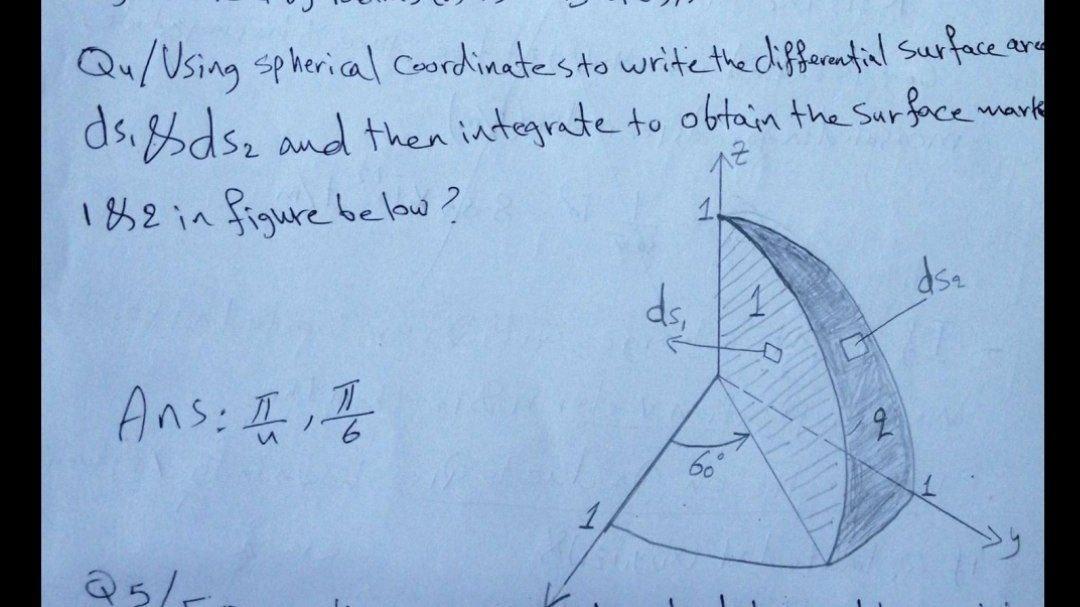 Q4/Using spherical coordinates to write the differential surface area
ds₁ & ds₂ and then integrate to obtain the surface mark
1 & 2 in figure below?
z
1
ds₂
ds₁
1
Ans: π/4, π/6
2
60°
1
1
y
Q5/